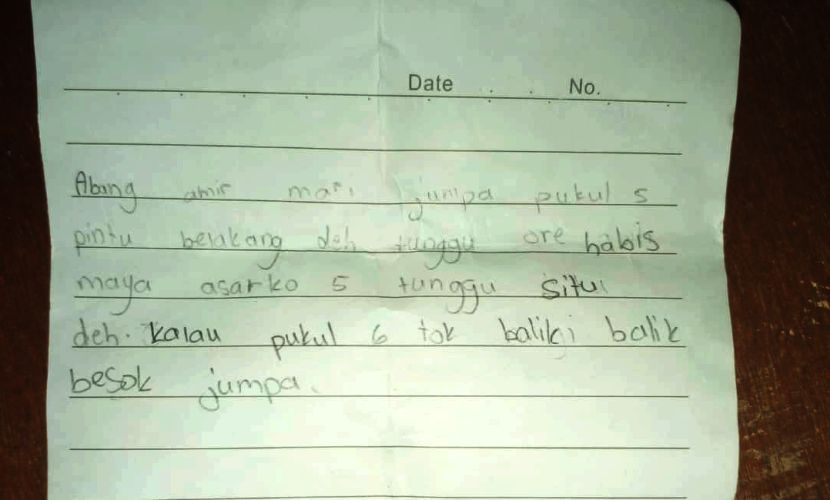 Date No.
Abang amir mari jumpa pukul 5
pintu belakang deh tunggu ore habis
maya asarko 5 tunggu situ
deh. kalau pukul 6 tok baliki balik
besok jumpa.